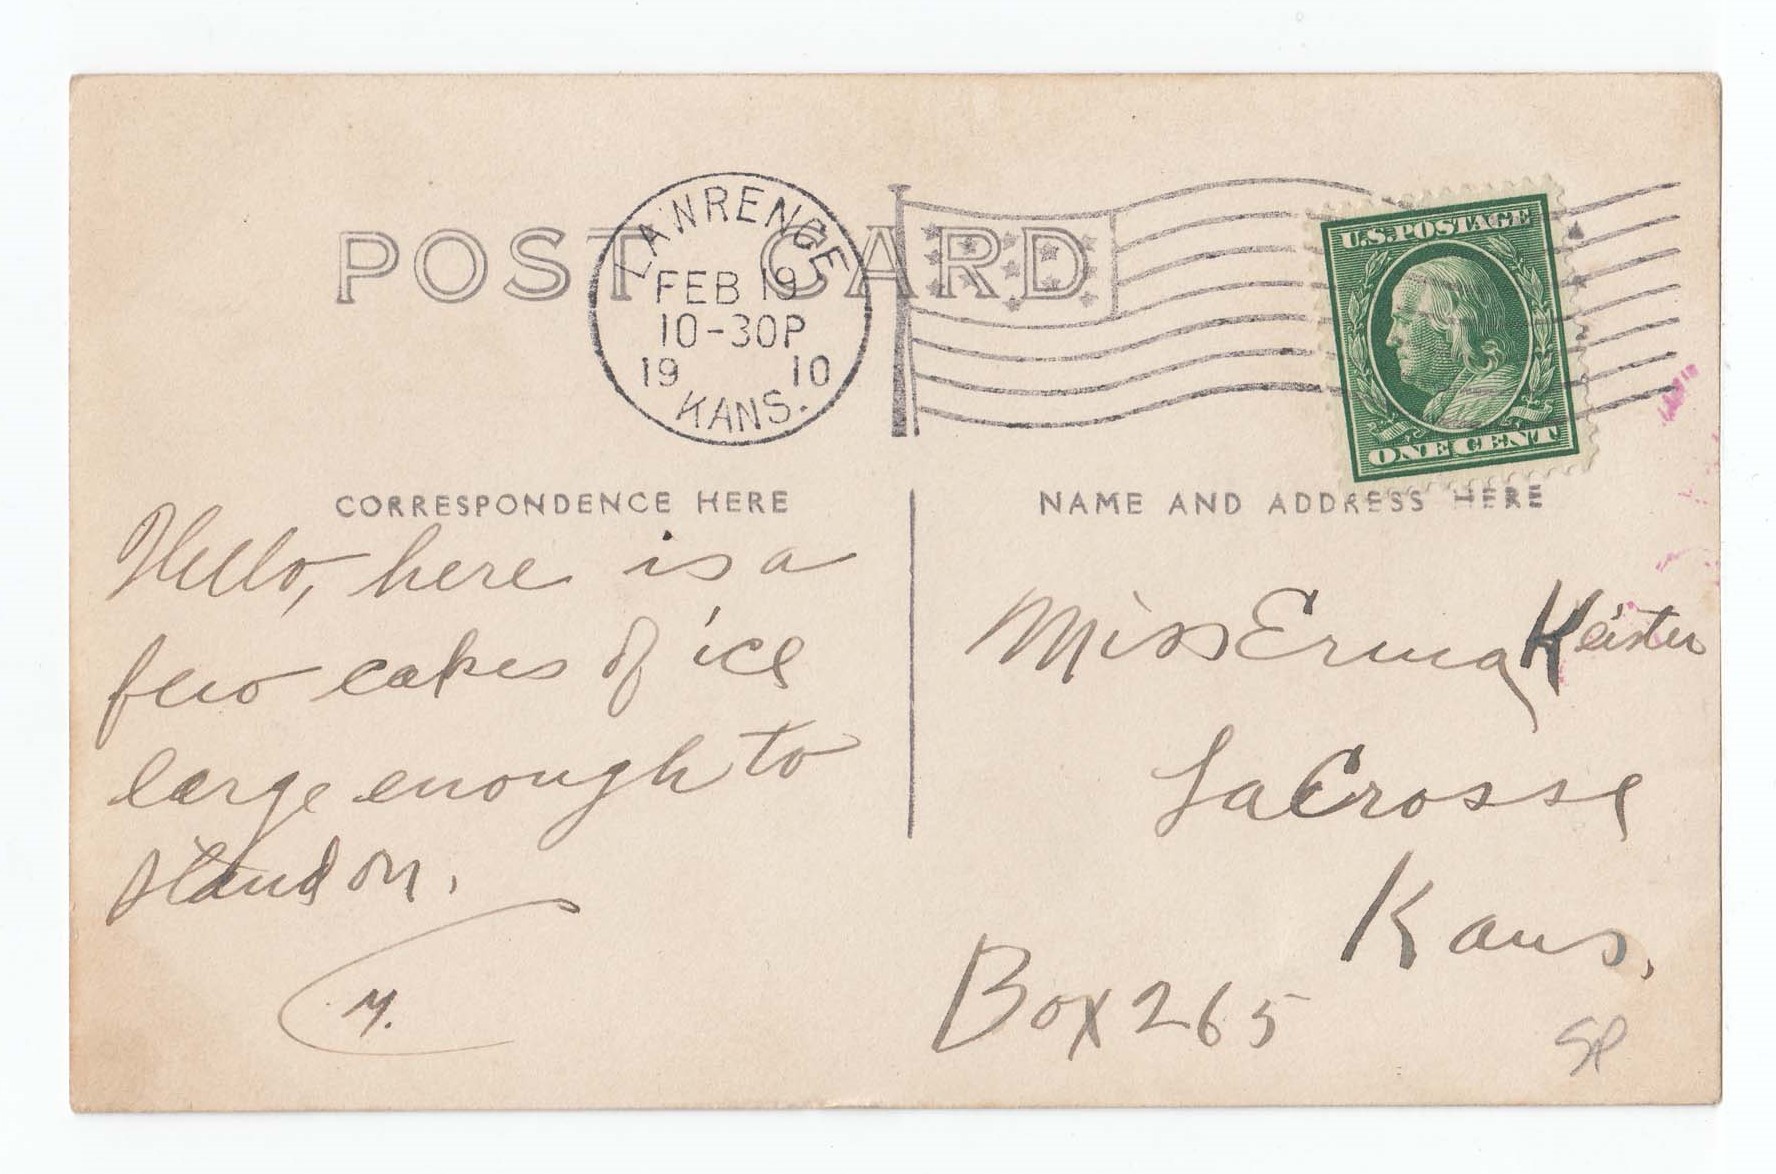 POST CARD
LAWRENCE
FEB 19
10-30P
19 10
KANS.
U.S. POSTAGE
ONE CENT
CORRESPONDENCE HERE
Hello, here is a
few cakes of ice
large enough to
stand on.
M.
NAME AND ADDRESS HERE
Miss Erma Keister
LaCrosse
Kans.
Box 265